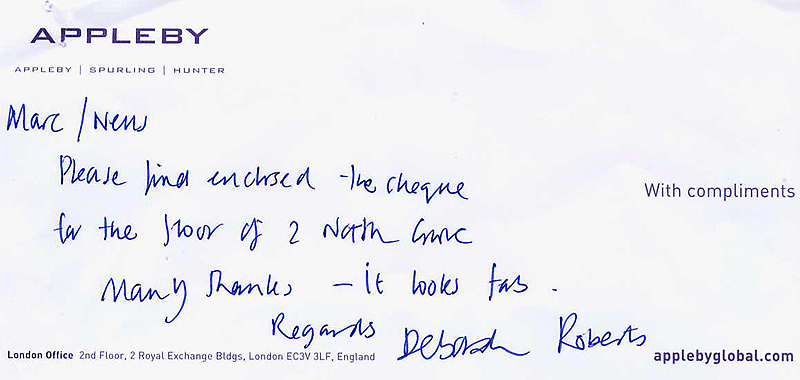 APPLEBY
APPLEBY | SPURLING | HUNTER
Marc /
Please find enclosed the cheque
With compliments
for the floor of 2 North
Many thanks – it looks fab.
Regards Deborah Roberts
London Office 2nd Floor, 2 Royal Exchange Bldgs, London EC3V 3LF, England
applebyglobal.com